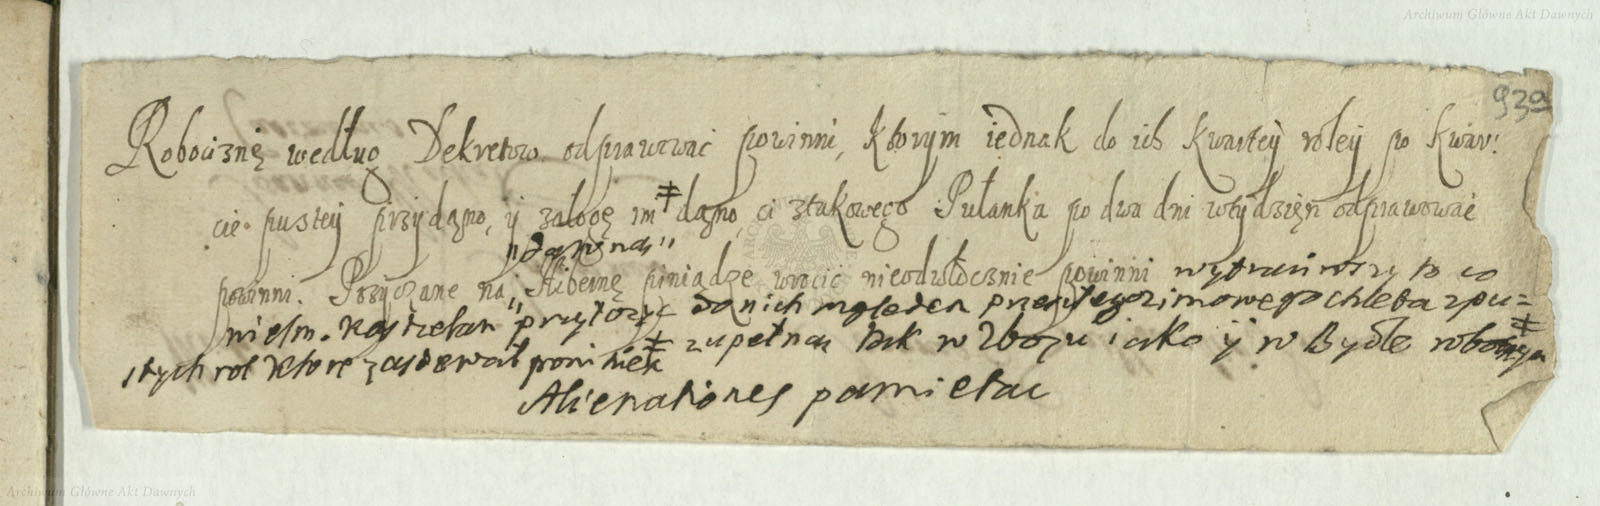 Archiwum Główne Akt Dawnych
93a
Robociznę według Dekretow odprawować powinni, Ktorym iednak do ich kwartey roley po kwar:
cie pustey przydąno, y załogę im ‡ dąno, ci ztakowego Pułanka po dwa dni wtydzięń odprawować
"dawną"
powinni. Pożyczane na Hibernę piniądze wrocić nieodwłocznie powinni wytrąciwszy to co
niesm. Kasztelan "przyłożyć do nich względem przeszłego zimowego chleba zpu=
stych rol ktore zasiewał powinien ‡ zupełna tak w Zbożu iako y w Bydle robotnym ‡
Alienationes pamietac
Archiwum Główne Akt Dawnych